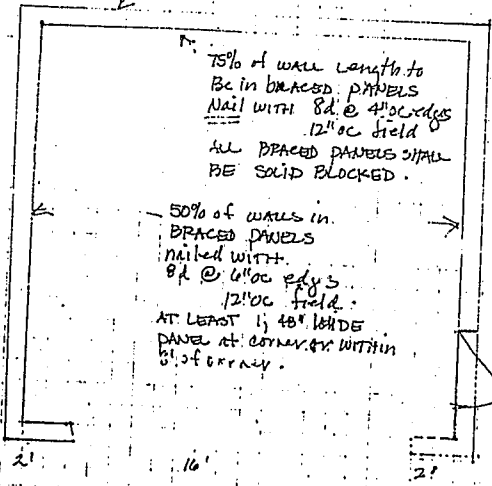 75% of WALL Length to
Be in BRACED PANELS
Nail WITH 8d @ 4"oc edgs
12"oc field
ALL BRACED PANELS SHALL
BE SOLID BLOCKED.
50% of WALLS in
BRACED PANELS
nailed WITH
8d @ 6"oc edgs
12"oc field.
AT LEAST 1, 48" WIDE
PANEL at corner or WITHIN
8' of corner.
2' 16' 2'